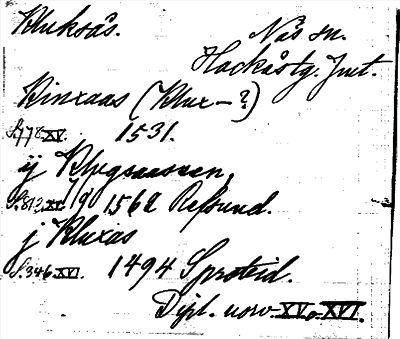 Kluksås.
Näs sn.
Hackås tg. Jmt.
Kinxaas (Klux-?)
S.778 XV. 1531.
ij Klygsaassen,
S.812, XV. 1562 Refsund.
j Kluxas
S.346 XVI. 1494 Sproteid.
Dipl. norv. XV o. XVI.